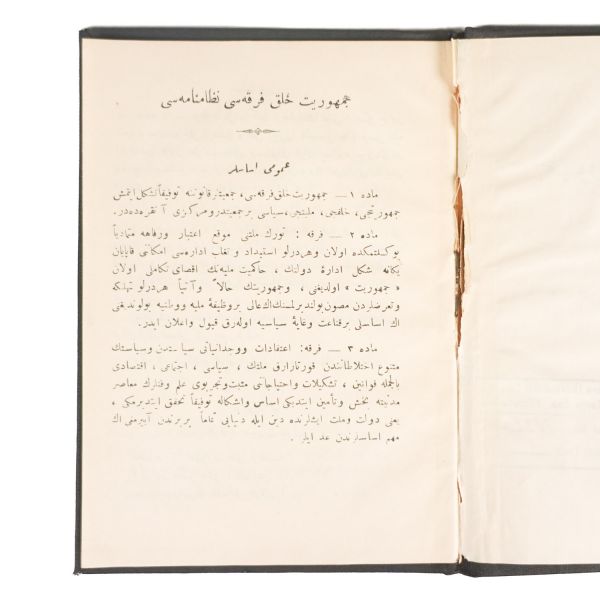 جمهوریت خلق فرقه‌سی نظامنامه‌سی
عمومی اساسلر
ماده ١ — جمهوریت خلق فرقه‌سی، جمعیتلر قانوننه توفیقاً تشکل ایتمش
جمهوریتجی، خلقجی، ملیتجی، سیاسی بر جمعیتدر و مرکزی آنقره‌ده‌در.
ماده ٢ — فرقه : تورك ملتنی موقع اعتبار و رفاهه متمادیاً
یوكسلتمكده اولان و هر درلو استبداد و تغلب اداره‌سی امکاننی قاپایان
یگانه شکل ادارهٔ دولتك ، حاکمیت ملیه‌نك اقصای تکاملی اولان
« جمهوریت » اولدیغنی ، و جمهوریتك حالاً و آتیاً هر درلو تهلكه
و تعرضلردن مصون بولندیرلمسنك اك عالی بر وظیفهٔ ملیه و وطنیه بولوندیغنی
اك اساسلی بر قناعت و غایهٔ سیاسیه اوله‌رق قبول و اعلان ایدر.
ماده ٣ — فرقه: اعتقادات و وجدانیاتی سیاستدن و سیاستك
متنوع اختلاطاتندن قورتارارق ملتك ، سیاسی ، اجتماعی ، اقتصادی
بالجمله قوانین ، تشکیلات و احتیاجاتنی مثبت و تجربوی علم و فنلرك معاصر
مدنیته بخش و تأمین ایتدیكی اساس و اشکاله توفیقاً تحقق ایتدیرمكی ،
یعنی دولت و ملت ایشلرنده دین ایله دنیایی تماماً بربرندن آییرمه‌یی اك
مهم اساسلرندن عد ایلر .